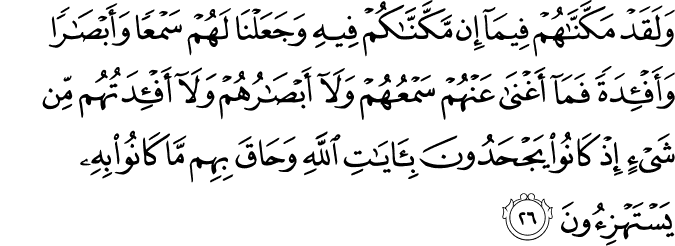 وَلَقَدْ مَكَّنَّٰهُمْ فِيمَآ إِن مَّكَّنَّٰكُمْ فِيهِ وَجَعَلْنَا لَهُمْ سَمْعًا وَأَبْصَٰرًا
وَأَفْـِٔدَةً فَمَآ أَغْنَىٰ عَنْهُمْ سَمْعُهُمْ وَلَآ أَبْصَٰرُهُمْ وَلَآ أَفْـِٔدَتُهُم مِّن
شَىْءٍ إِذْ كَانُوا۟ يَجْحَدُونَ بِـَٔايَٰتِ ٱللَّهِ وَحَاقَ بِهِم مَّا كَانُوا۟ بِهِۦ
يَسْتَهْزِءُونَ ٢٦